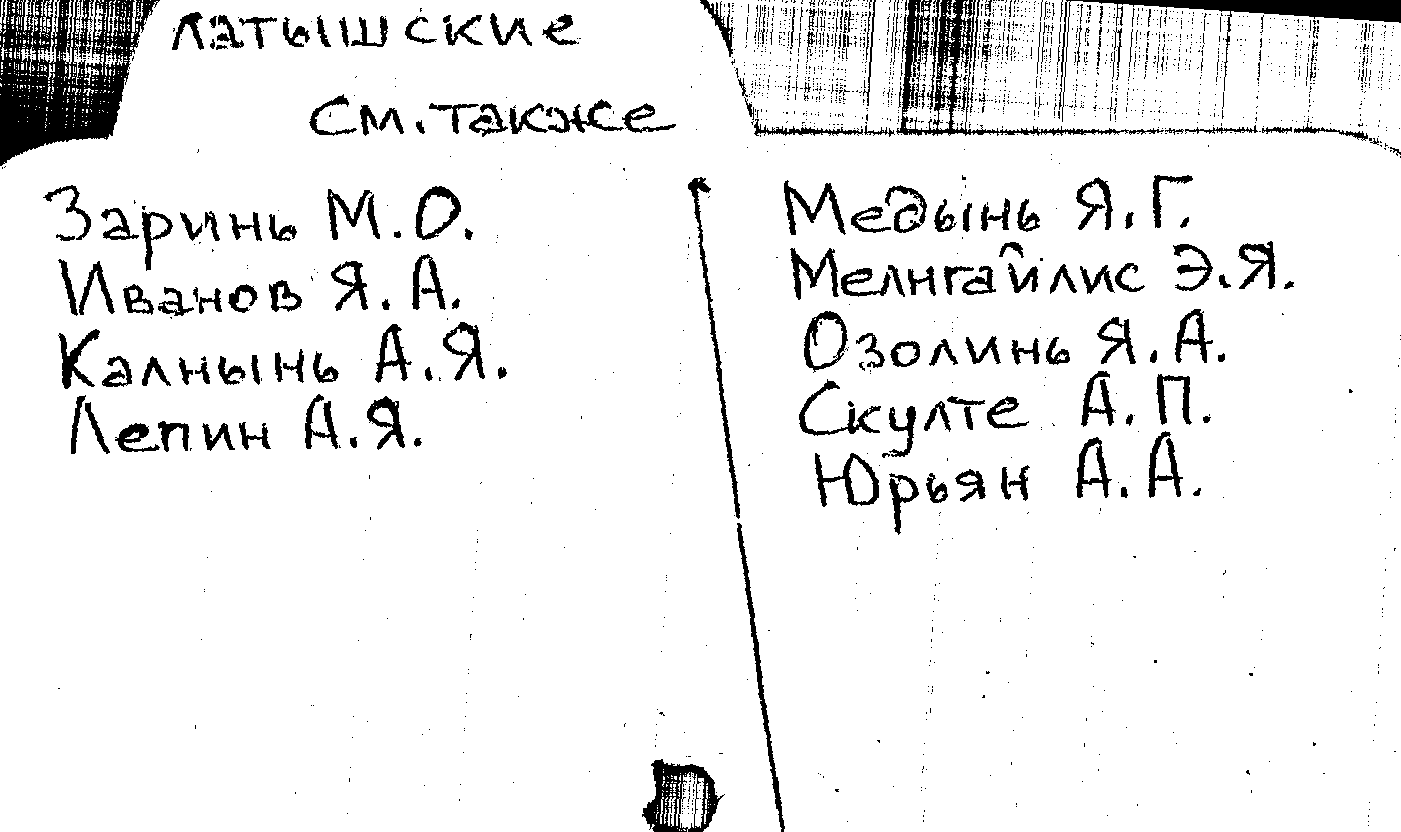 латышские
См. также
Заринь М.О.
Иванов Я.А.
Калнынь А.Я.
Лепин А.Я.
Медынь Я.Г.
Мелнгайлис Э.Я.
Озолинь Я.А.
Скулте А.П.
Юрьян А.А.